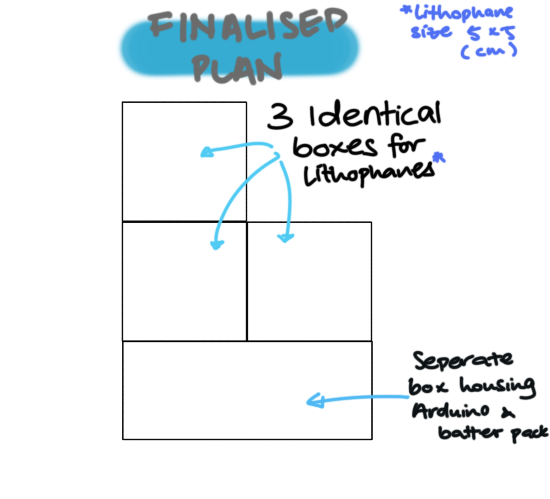 FINALISED
PLAN
*Lithophane
size 5x5
(cm)
3 Identical
boxes for
Lithophanes*
Seperate
box housing
Arduino &
batter pack